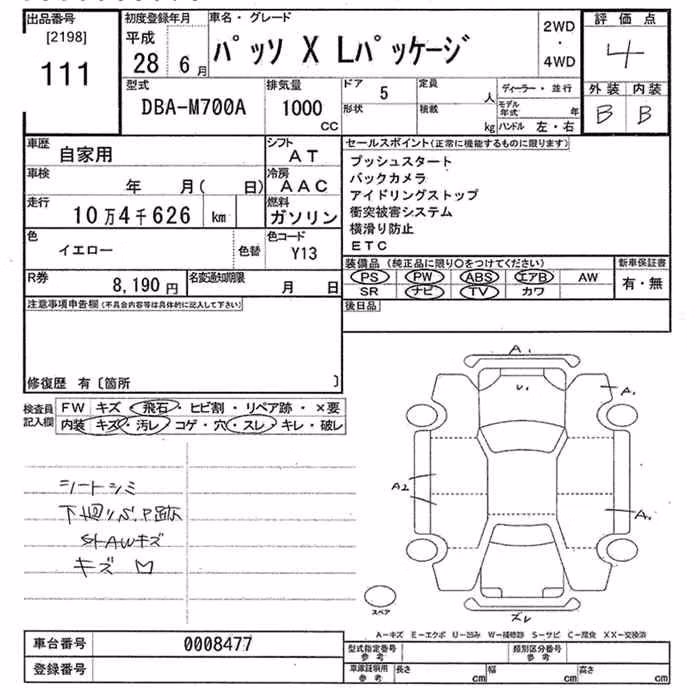 出品番号
[2198]
111
初度登録年月
平成
28 6月
車名・グレード
パッソ X Lパッケージ
2WD
・
4WD
評価点
4
外装 内装
B B
型式
DBA-M700A
排気量
1000
CC
ドア 5
形状
定員
人
積載
kg
ディーラー・並行
モデル年式 年
ハンドル 左・右
車歴
自家用
シフト
AT
セールスポイント(正常に機能するものに限ります)
プッシュスタート
バックカメラ
アイドリングストップ
衝突被害システム
横滑り防止
ETC
車検
年 月( 日)
冷房
AAC
走行
10万4千626 km
燃料
ガソリン
色
イエロー
色替
色コード
Y13
R券
8,190円
名変通知期限
月 日
装備品 (純正品に限り○をつけてください)
PS PW ABS エアB AW
SR ナビ TV カワ
新車保証書
有・無
注意事項申告欄(不具合内容等は具体的に記入して下さい)
後日品
修復歴 有〔箇所 〕
検査員記入欄
FW キズ・飛石・ヒビ割・リペア跡・×要
内装 キズ・汚レ・コゲ・穴・スレ・キレ・破レ
シートシミ
キズ
A1
U1
A1
A2
A1
スレ
スペア
A-キズ E-エクボ U-凹み W-補修跡 S-サビ C-腐食 XX-交換済
車台番号 0008477
登録番号
型式指定番号 参考
類別区分番号 参考
車庫証明用 参考
長さ cm
幅 cm
高さ cm